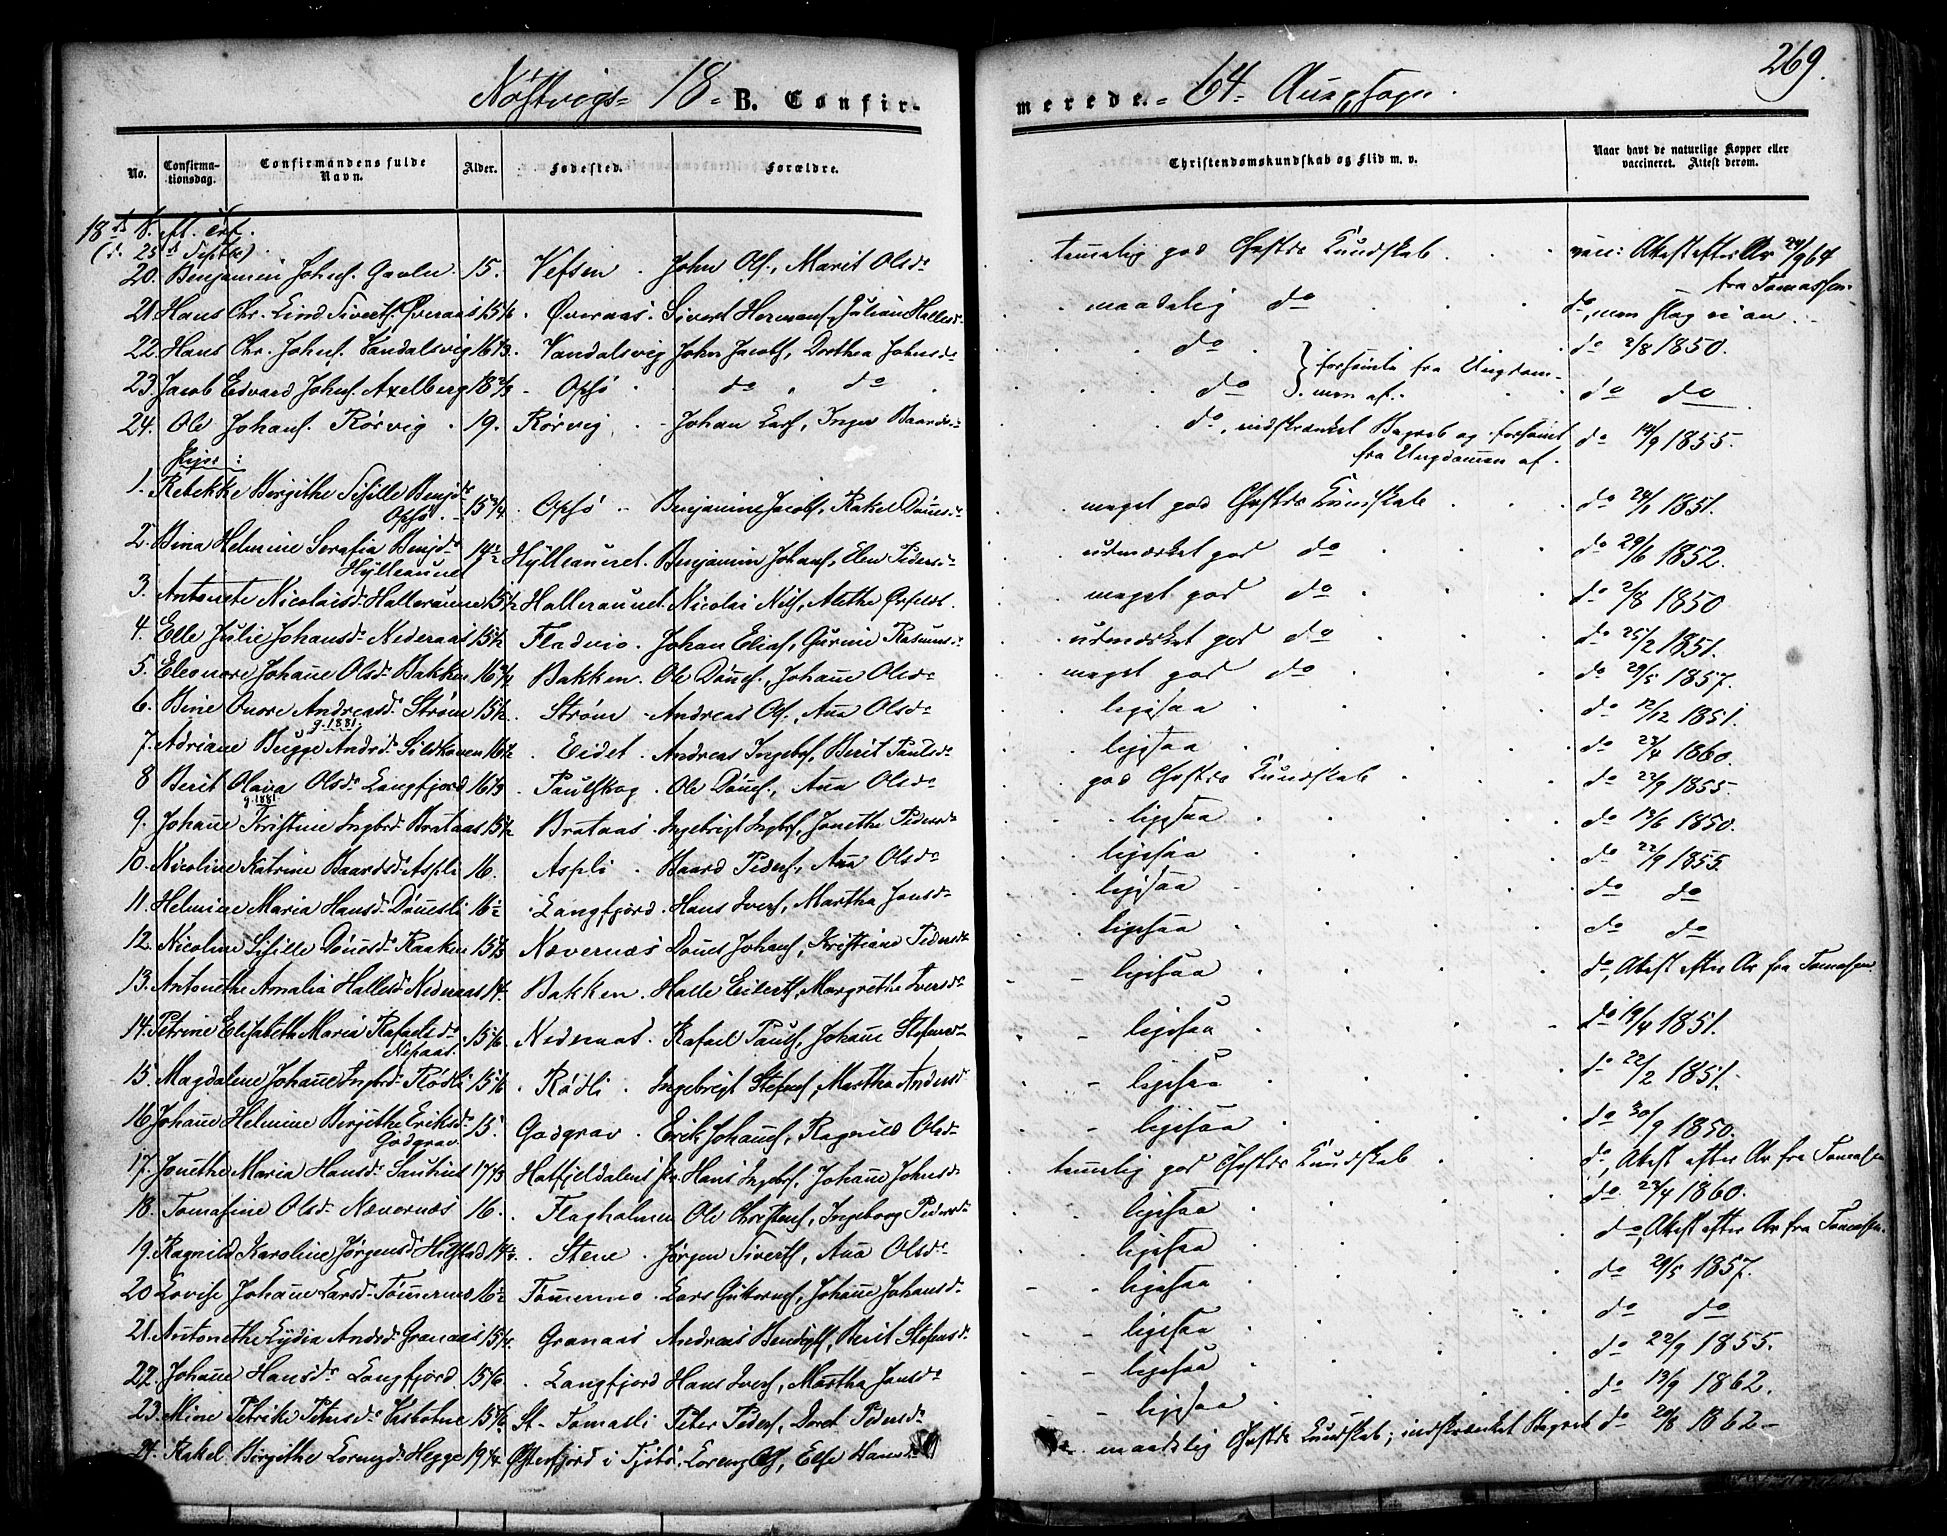 269.
Nøstvigs- 18- B. Confir-
merede. - 64-
No.
Confirma-
tionsdag.
Confirmandens fulde
Navn.
Alder.
Fødested.
Forældre.
Christendomskundskab og Flid m. v.
Naar havt de naturlige Kopper eller
vaccineret. Attest derom.
18de S. Trf.
(d. 25d Septbr)
20. Benjamin Johns. 15. Vefsen. John Ols., Marit Olsdr temmelig god Chrstds Kundskab vacc: Attest efter 24/9 64
fra Tomassen
21. Hans Chr. Lind Siverts. Øveraas 15 1/2. Øveraas. Sivert Hermans., Julian Hallesdr maadelig do do,
22. Hans Chr. Johns. Vandalsvig 16 1/3. Vandalsvig John Jacobs., Dorthea Johnsdr do do 2/8 1850.
23. Jacob Edvard Johns. Axelberg 18 2/3 Opsø do do do forsømte fra Ungdom- do do
men af.
24. Ole Johans. Rørvig 19. Rørvig Johan Lars., Inger Baardsdr do, indskrænket Begreb og forsømt do 14/9 1855.
fra Ungdommen af.
Piger:
1. Rebekke Birgithe Sisille Benjdr 15 3/4. Opsø Benjamin Jacobs., Rakel Dønnesdr meget god Chrstds Kundskab do 24/1 1851.
Opsø
2. Bina Helmine Serafia Benjdr 14 1/2 Hylleaunet. Benjamin Johans., Elen Pedersdr udmærket god do do 29/6 1852.
Hylleaunet
3. Antonete Nicolaisdr Halleraunet 15 1/2 Halleraunet. Nicolai Nils., Alethe meget god do do 2/8 1850
4. Elle Julie Johansdr Nederaas 15 1/2 Fladmo. Johan Elias., Gurine Rasmusdr udmærket god do do 25/2 1851.
5. Eleonore Johanne Olsdr Bakken 16 3/4 Bakken. Ole Dønnes., Johanne Olsdr meget god do do 29/5 1857.
6. Bine Onore Andreasdr Strøm 15 1/2. Strøm Andreas Ols., Anna Olsdr ligesaa do 12/12 1851.
g. 1881.
7. Adriane Bugge Andrdr Sildhoven 16 1/2. Eidet. Andreas Ingebrs., Berit Paulsdr ligesaa do 23/4 1860.
8 Berit Olava Olsdr Langfjord 16 1/3. Paulskog. Ole Dønnes., Anna Olsdr god Chrstds Kundskab do 22/9 1855.
g. 1881
9. Johanne Kristine Ingbrdr Brataas 15 1/2 Brataas. Ingebrigt Ingbrs., Jonethe Pedersdr ligesaa do 13/6 1850.
10. Nicoline Katrine Baardsdr Aspli 16. Aspli. Baard Peders., Anna Olsdr ligesaa do 22/9 1855.
11. Helmine Maria Hansdr Dønnesli 16 1/2 Langfjord. Hans Ivers., Martha Jonsdr ligesaa do do
12. Nicoline Sisille Dønnesdr Raaken 15 1/3 Nævernæs Dønnes Johans., Kristiane Pedersdr ligesaa do do
13. Antonethe Amalia Hallesdr Nederaas 14. Bakken. Halle Eilerts., Margrethe Iversdr ligesaa do, Attest efter Ar fra Tomassen
14. Petrine Elisabeth Maria Rafaelsdr 15 1/6. Nederaas. Rafael Pauls., Johanne Stefensdr ligesaa do 19/4 1851.
15. Magdalene Johanne Ingbrdr Rødli 15 1/6 Rødli. Ingebrigt Stefens., Martha Andersdr ligesaa do 22/2 1851.
16 Johanne Helmine Birgithe Eriksdr 15. Godgrav. Erik Johans., Ragnild Olsdr ligesaa do 30/9 1850.
Godgrav.
17. Jonethe Maria Hansdr 17 1/3 Hatfjeldalens pr. Hans Ingebrs., Johanne Johnsdr temmelig god Chrstds Kundskab do, Attest efter Ar fra Tomassen
18. Tomasine Olsdr Nævernæs 16. Flagholmen Ole Christens., Ingeborg Pedersdr ligesaa do 23/4 1860.
19. Ragnild Karoline Jørgensdr Hilstad 14 1/2. Stene. Jørgen Siverts., Anna Olsdr ligesaa do, Attest efter Ar fra Tomassen.
20 Lovise Johanne Larsdr Tømernes 16 1/2 Lars Guttorms., Johanne Johansdr ligesaa do 29/5 1857.
21. Antonethe Lydia Andrdr Granaas 15 1/4. Granaas Andreas Bendigts., Berit Stefensdr ligesaa do do
22. Johanne Hansdr Langfjord. 15 1/6. Langfjord Hans Ivers., Martha Jonsdr ligesaa do 22/9 1855.
23. Mine Petrike Petersdr 15 1/2. St. Tomasli Peter Peders., Doret Pedersdr ligesaa do 13/9 1862.
24. Rakel Birgithe Lorensdr Hegge 19 1/4. Østerfjord i Tjøtø. Lorens Ols., Else Hansdr maadelig Chrstds Kundskab; indskrænket Begreb do 20/8 1862 -